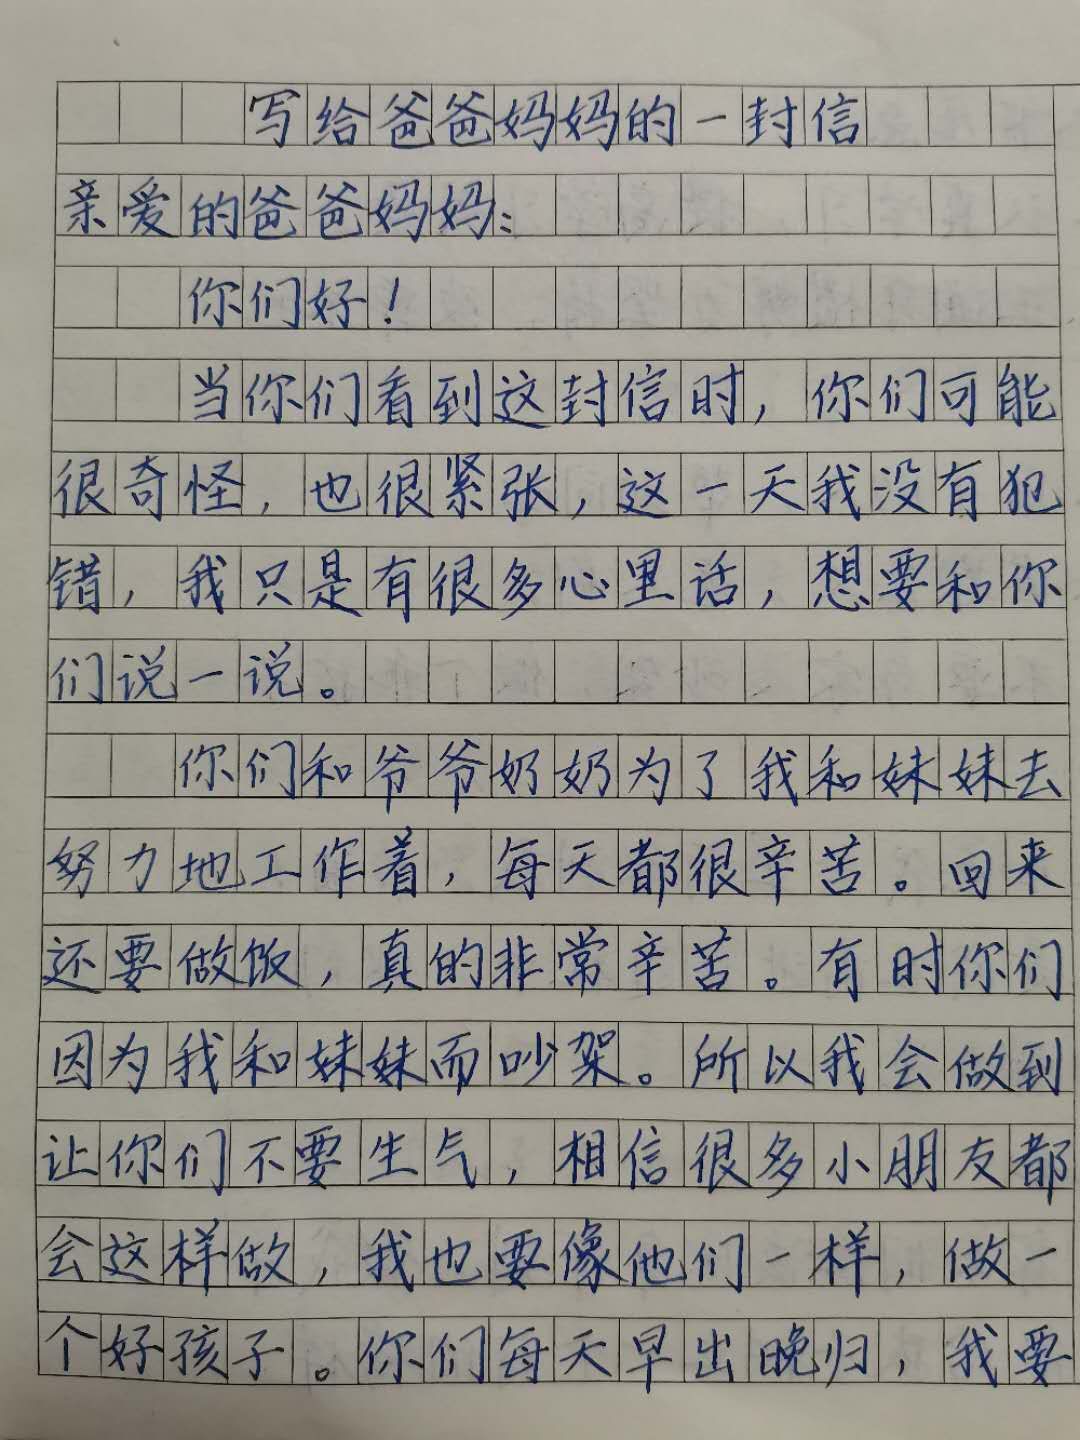 写给爸爸妈妈的一封信
亲爱的爸爸妈妈：
你们好！
当你们看到这封信时，你们可能
很奇怪，也很紧张，这一天我没有犯
错，我只是有很多心里话，想要和你
们说一说。
你们和爷爷奶奶为了我和妹妹去
努力地工作着，每天都很辛苦。回来
还要做饭，真的非常辛苦。有时你们
因为我和妹妹而吵架。所以我会做到
让你们不要生气，相信很多小朋友都
会这样做，我也要像他们一样，做一
个好孩子。你们每天早出晚归，我要